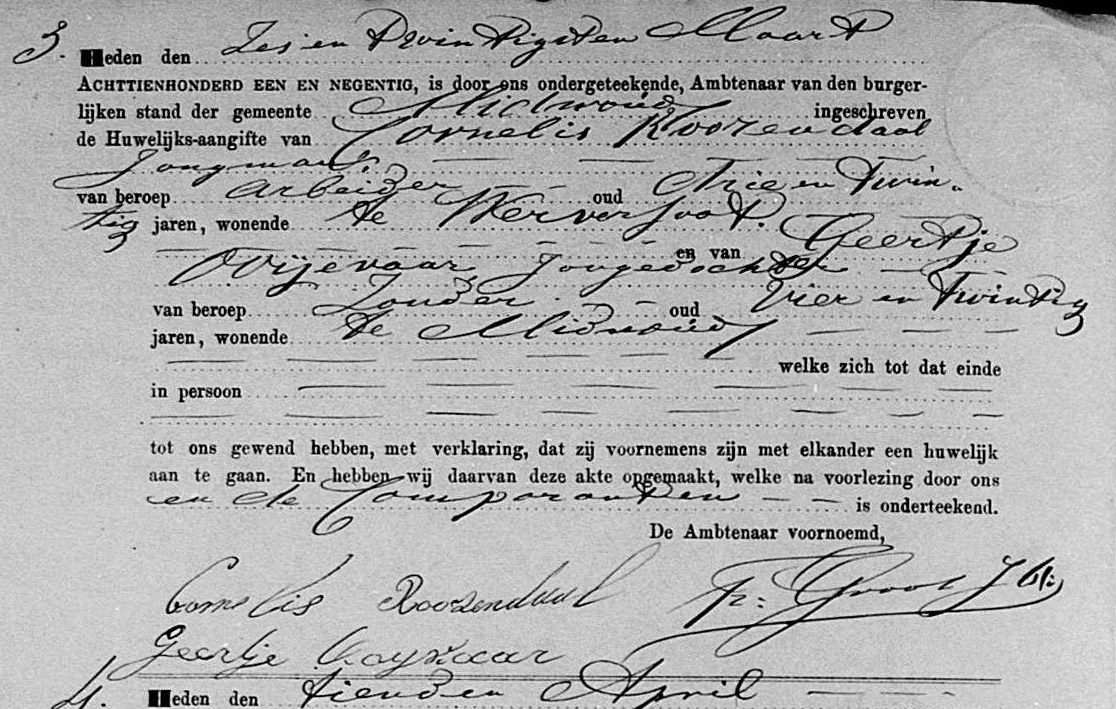 3. Heden den Zes en Twintigsten Maart
ACHTTIENHONDERD EEN EN NEGENTIG, is door ons ondergeteekende, Ambtenaar van den burger-
lijken stand der gemeente Midwoud ingeschreven
de Huwelijks-aangifte van Cornelis Roozendaal
Jongman
van beroep arbeider oud Drie en Twin-
tig jaren, wonende te Wervershoof.
en van Geertje
jongedochter
van beroep Zonder oud Vier en Twintig
jaren, wonende te Midwoud
welke zich tot dat einde
in persoon
tot ons gewend hebben, met verklaring, dat zij voornemens zijn met elkander een huwelijk
aan te gaan. En hebben wij daarvan deze akte opgemaakt, welke na voorlezing door ons
en de Comparanten is onderteekend.
De Ambtenaar voornoemd,
Cornelis Roozendaal
Geertje
4. Heden den tienden April